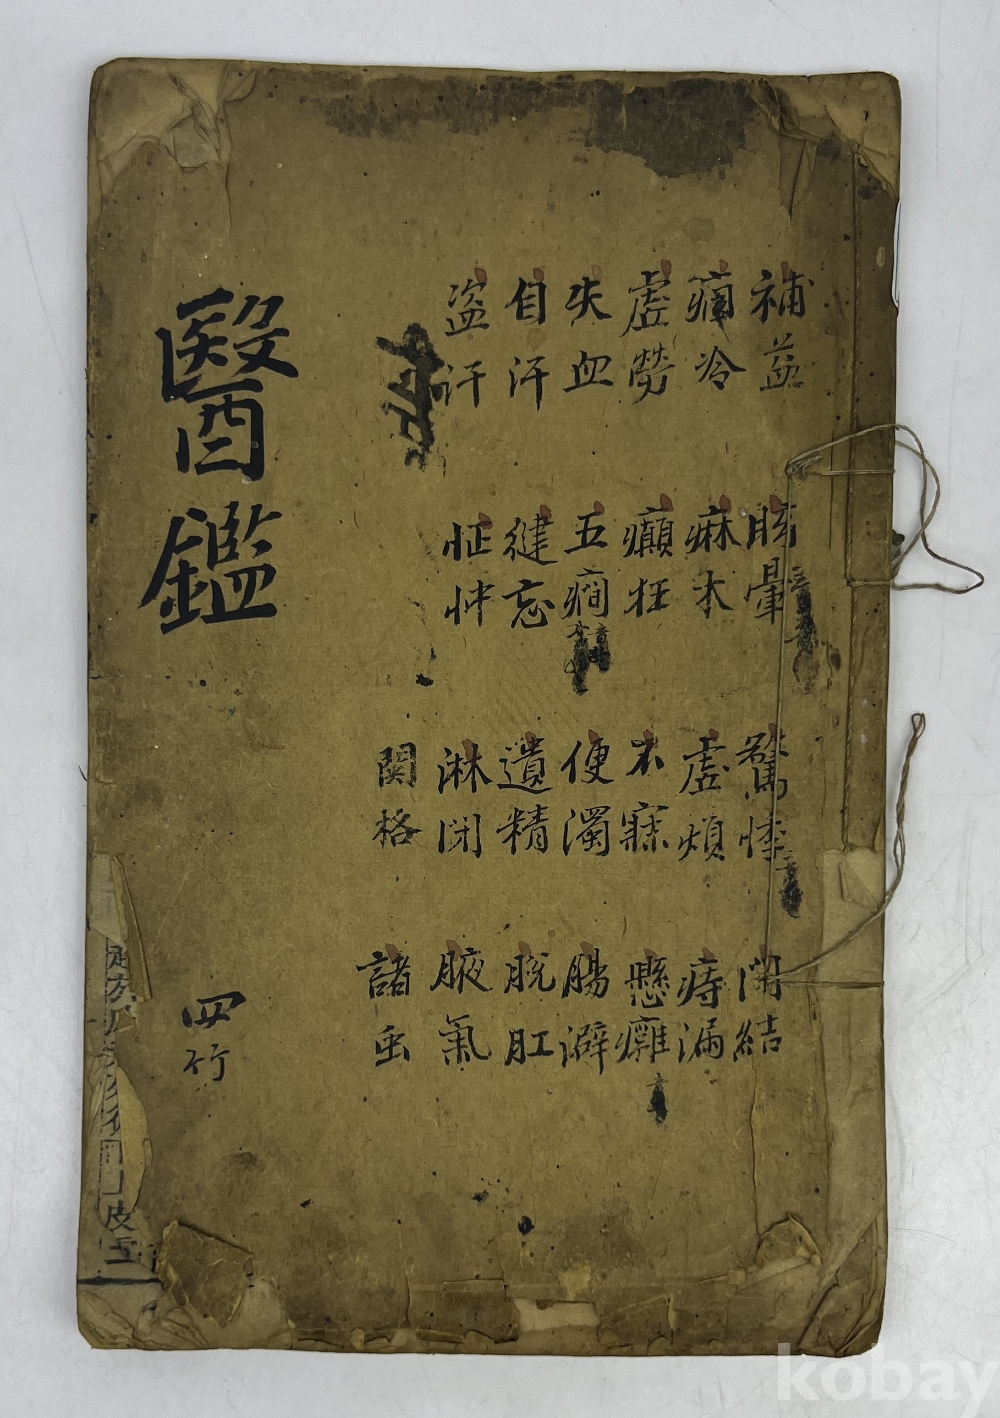 補益
痼冷
虛勞
失血
自汗
盜汗
眩暈
麻木
癲狂
五癇
健忘
怔忡
驚悸
虛煩
不寐
便濁
遺精
淋閉
関格
閉結
痔漏
懸癰
腸澼
脫肛
腋氣
諸虫
醫鑑
四竹
kobay